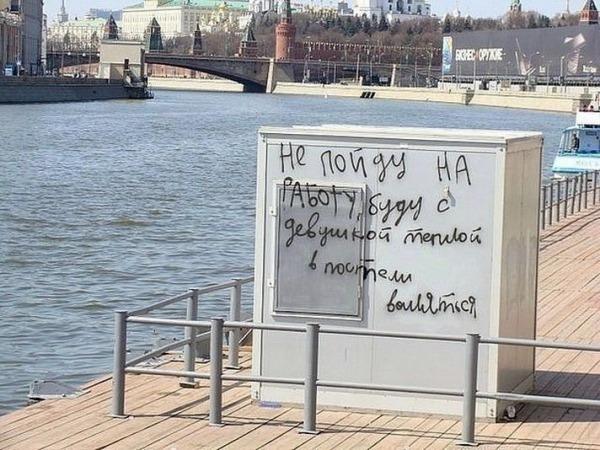 БИЗНЕС ОРУЖИЕ
Не пойду на
работу, буду с
девушкой теплой
в постели
валяться